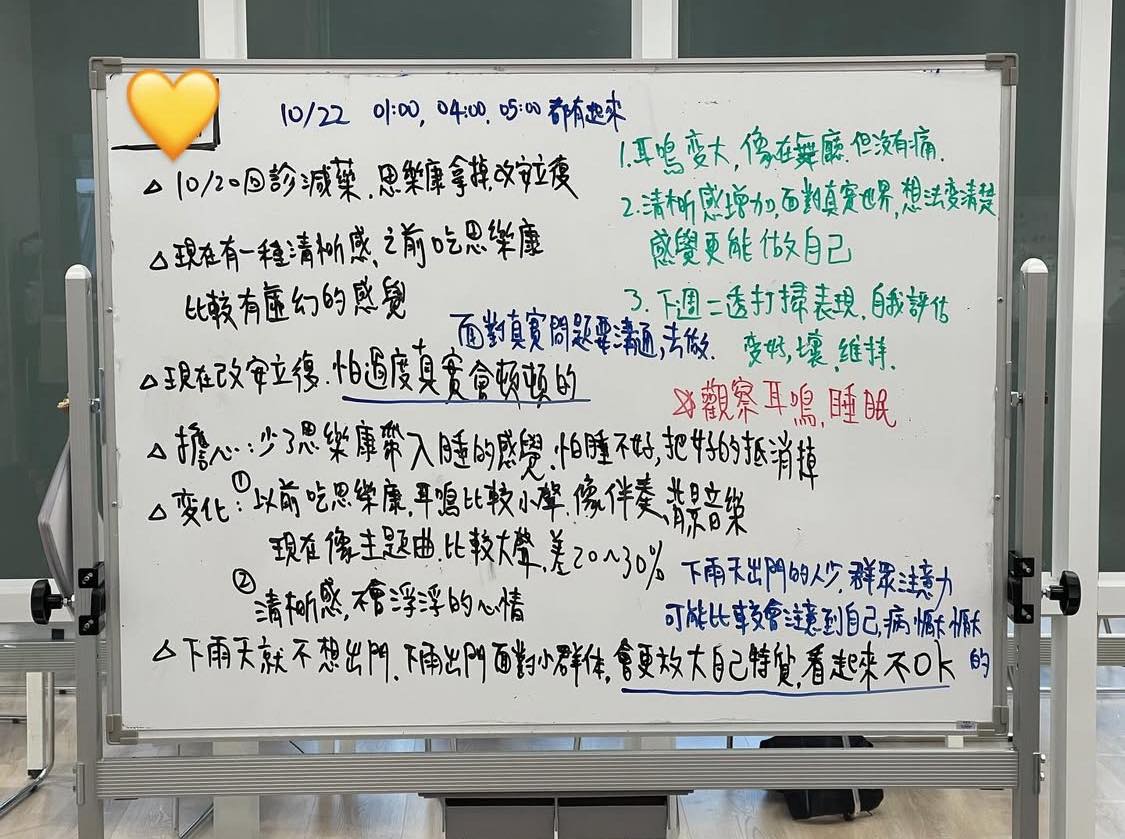 10/22 01:00, 04:00, 05:00 都有起來
△ 10/20回診減藥. 思樂康拿掉, 改安立復
△ 現在有一種清晰感, 之前吃思樂康
比較有虛幻的感覺
面對真實問題要溝通, 去做.
△ 現在改安立復. 怕過度真實會頓頓的
△ 擔心: 少了思樂康帶入睡的感覺. 怕睡不好, 把好的抵消掉
△ 变化: ① 以前吃思樂康, 耳鳴比較小聲. 像伴奏、背景音樂
現在像主題曲. 比較大聲. 差20~30%
② 清晰感, 不會浮浮的心情
△ 下雨天就不想出門. 下雨出門面對小群体, 會更放大自己特質, 看起來不OK
1. 耳鳴变大, 像在舞廳. 但沒有痛.
2. 清晰感增加, 面對真實世界, 想法变清楚
感覺更能做自己
3. 下週二透打掃表現, 自我評估
变好, 壞, 維持.
觀察耳鳴, 睡眠
下雨天出門的人少, 群眾注意力
可能比較會注意到自己, 病懨懨
的